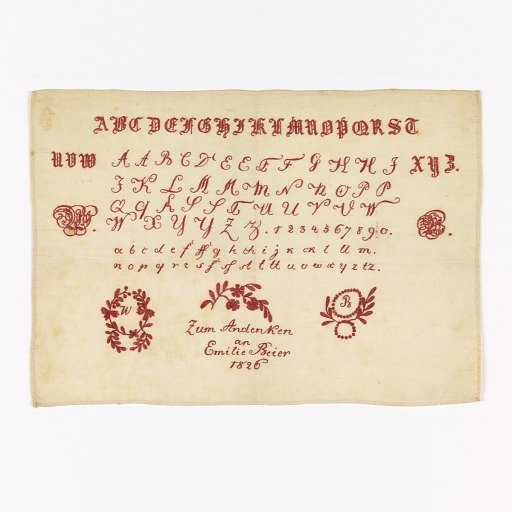 ABCDEFGHIKLMNOPQRST
UVW A A B C D E E F F G H H I XYZ.
I K L M M M N N O P P
Q Q R S S T U U V V W
W X Y Y Z Z. 1 2 3 4 5 6 7 8 9 0.
a b c d e f ff g h th i j k ck l ll m.
n o p q r s ſ ſſ st t U u v w x y z tz.
W
B
Zum Andenken
an
Emilie Beier
1826